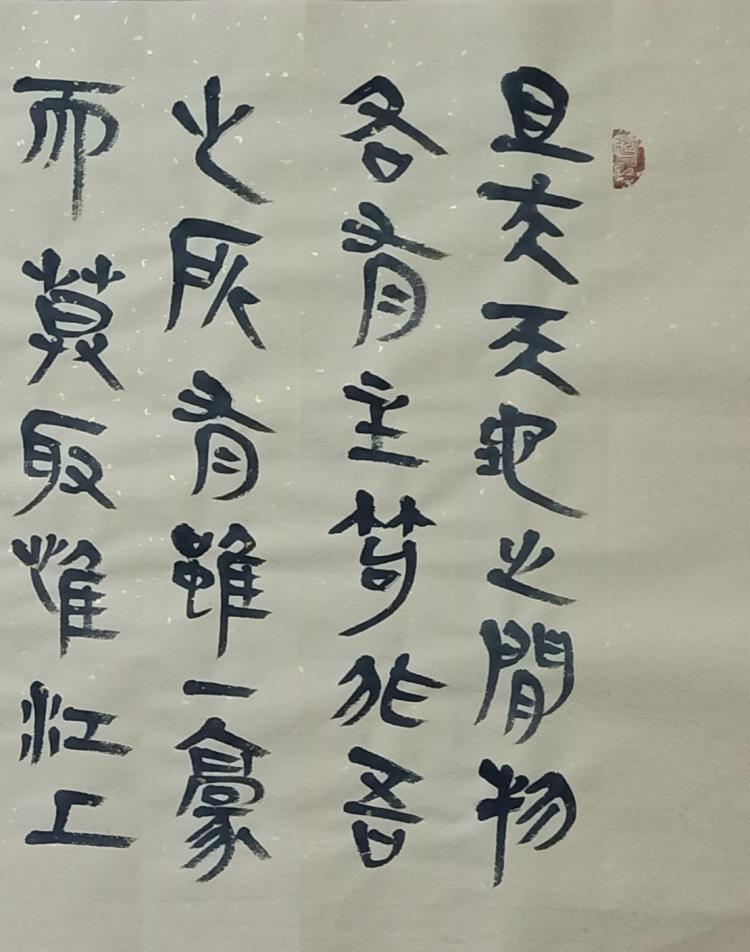 且夫天地之閒物
各有主苟非吾
之所有雖一豪
而莫取惟江上